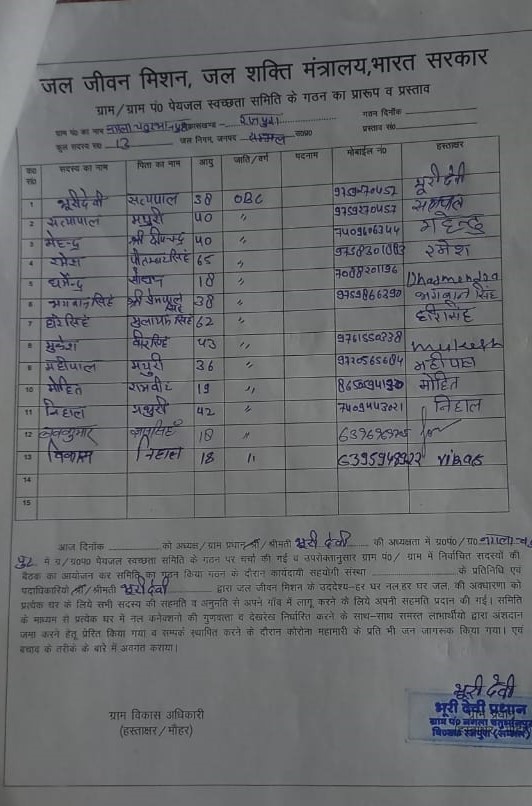 जल जीवन मिशन, जल शक्ति मंत्रालय,भारत सरकार
ग्राम/ग्राम पं0 पेयजल स्वच्छता समिति के गठन का प्रारूप व प्रस्ताव
ग्राम पं0 का नाम नगला विकासखण्ड रजपुरा गठन दिनाँक
कुल सदस्य सं0 13 जल निगम, जनपद सम्भल उ0प्र0 प्रस्ताव सं0
क्र0 सं0 सदस्य का नाम पिता का नाम आयु जाति/वर्ग पदनाम मोबाईल नं0 हस्ताक्षर
1 भूरीदेवी सत्यपाल 38 OBC 9759270457 भूरी देवी
2 सत्यापाल मथुरी 40 " 9759270457 सत्यपाल
3 महेन्द्र श्री 40 " 7409606344 महेन्द्र
4 रमेश 65 " रमेश
5 धर्मेन्द्र 18 " 7088201196 Dharmendra
6 भगवानसिंह श्री 38 " 9759866390 भगवान सिंह
7 हीरसिंह मुलायम सिंह 62 " हीरासिंह
8 मुकेश वीरसिंह 43 " 9761550838 Mukesh
9 महीपाल मथुरी 36 " 9720565684 महीपाल
10 मोहित रामवीर 19 " मोहित
11 निहाल मथुरी 42 " 7409443021 निहाल
12 18 "
13 विकास निहाल 18 " 6395948922 vikas
14
15
आज दिनाँक को अध्यक्ष/ग्राम प्रधान श्री/श्रीमती भूरी देवी की अध्यक्षता में ग्र0पं0/ग्रा0 नगला
पुर में ग्र/ग्र0पं0 पेयजल स्वच्छता समिति के गठन पर चर्चा की गई व उपरोक्तानुसार ग्राम पं0/ ग्राम में निर्वाचित सदस्यों की
बैठक का आयोजन कर समिति का गठन किया गया गठन के दौरान कार्यदायी सहयोगी संस्था के प्रतिनिधि एवं
पदाधिकारियों श्री/श्रीमती भूरीदेवी द्वारा जल जीवन मिशन के उददेश्य-हर घर नल हर घर जल. की अवधारणा को
प्रत्येक घर के लिये सभी सदस्य की सहमति व अनुमति से अपने गाँव में लागू करने के लिये अपनी सहमति प्रदान की गई। समिति
के माध्यम से प्रत्येक घर में नल कनेक्शनो की गुणवत्ता व देखरेख निर्धारित करने के साथ-साथ समस्त लाभार्थीयो द्वारा अंशदान
जमा करने हेतु प्रेरित किया गया व सम्पर्क स्थापित करने के दौरान कोरोना महामारी के प्रति भी जन जागरूक किया गया। एवं
बचाव के तरीके के बारे में अवगत कराया।
भूरी देवी
ग्राम विकास अधिकारी भूरी देवी प्रधान
(हस्ताक्षर/मौहर) ग्राम पं0 नगला
वि0ख0 रजपुरा (सम्भल)